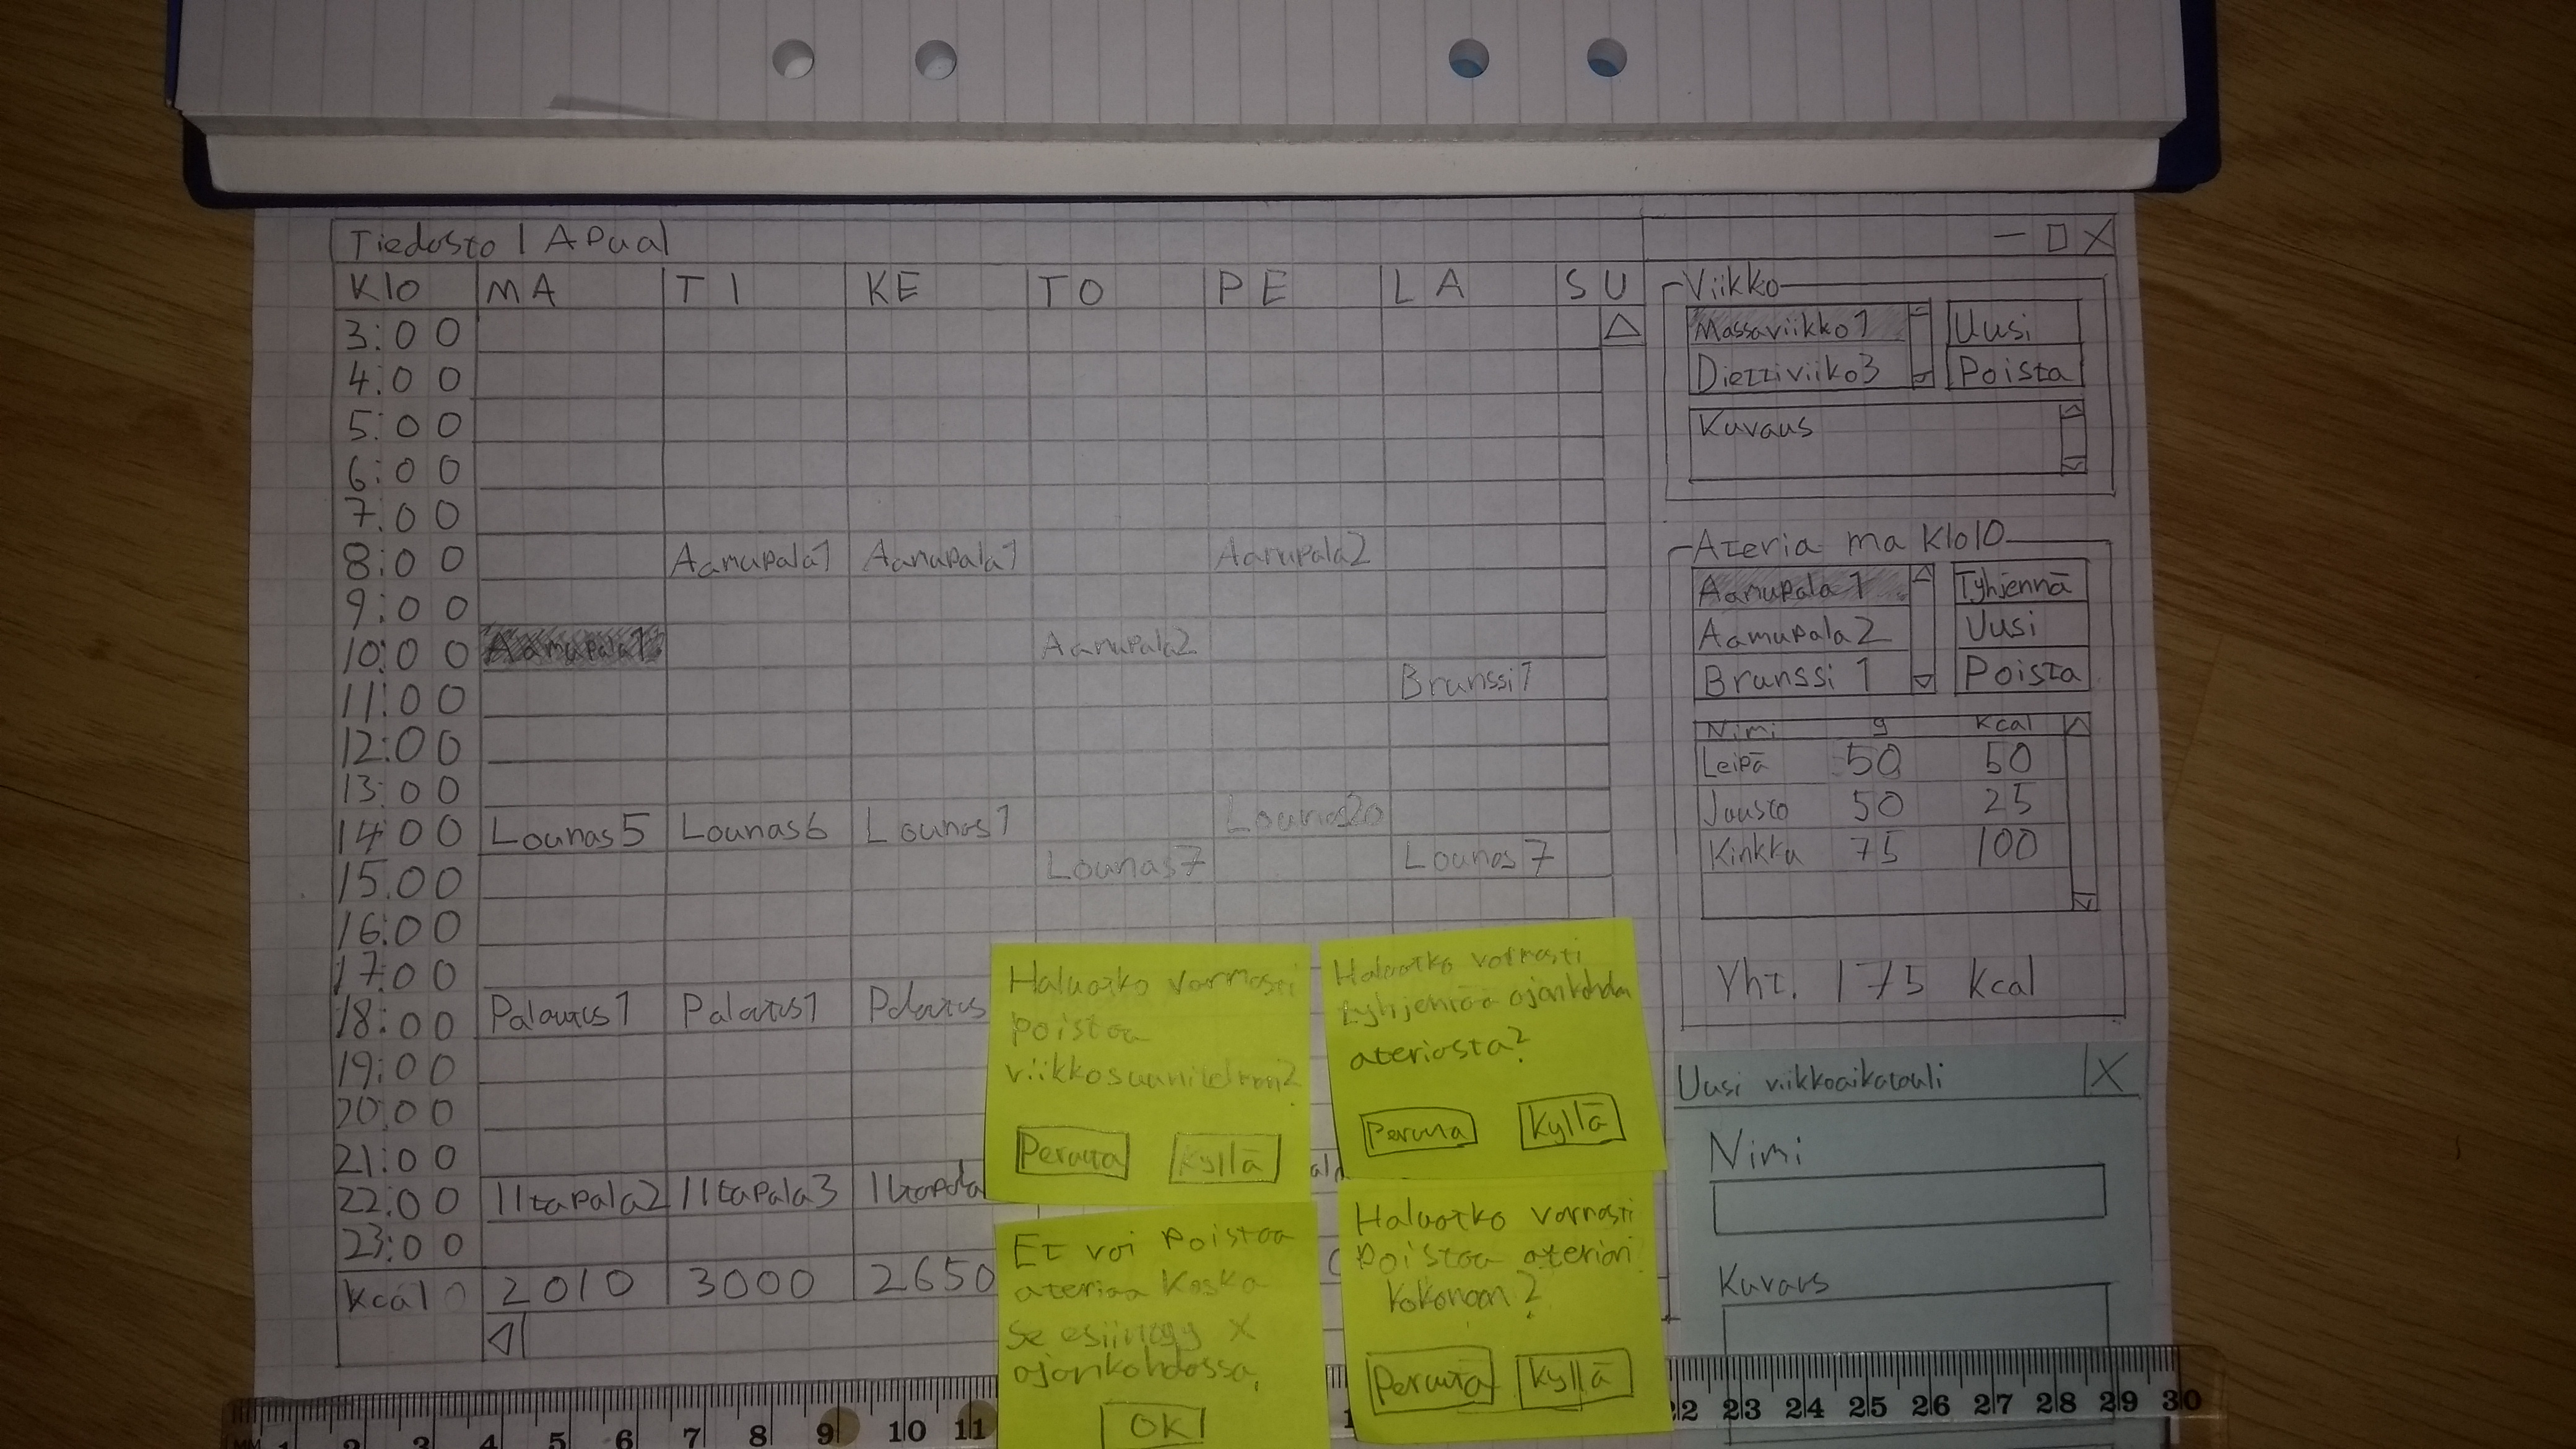 Tiedosto | Apua |
— □ X
Klo MA TI KE TO PE LA SU
3:00
4:00
5:00
6:00
7:00
8:00 Aamupala1 Aamupala1 Aamupala2
9:00
10:00 Aamupala1 Aamupala2
11:00 Brunssi1
12:00
13:00
14:00 Lounas5 Lounas6 Lounas1 Lounas20
15.00 Lounas7 Lounas7
16:00
17:00
18:00 Palautus1 Palatus1 Palautus
19:00
20:00
21:00
22:00 Iltapala2 Iltapala3 Iltapala
23:00
kcal 2010 3000 2650
Viikko
Massaviikko1
Diettiviiko3
Uusi
Poista
Kuvaus
Ateria ma klo10
Aamupala 1
Aamupala2
Brunssi 1
Tyhjennä
Uusi
Poista
Nimi g kcal
Leipä 50 50
Juusto 50 25
Kinkku 75 100
Yht. 175 kcal
Haluatko varmasti
poistaa
viikkosuunitelman?
Peruuta Kyllä
Haluatko varmasti
tyhjentää ajankohdan
ateriasta?
Peruuta Kyllä
Et voi poistaa
ateriaa koska
se esiintyy X
ajankohdassa.
OK
Haluatko varmasti
poistaa aterian
kokonaan?
Peruuta Kyllä
Uusi viikkoaikataulu X
Nimi
Kuvaus
MM 1 2 3 4 5 6 7 8 9 10 11
22 23 24 25 26 27 28 29 30